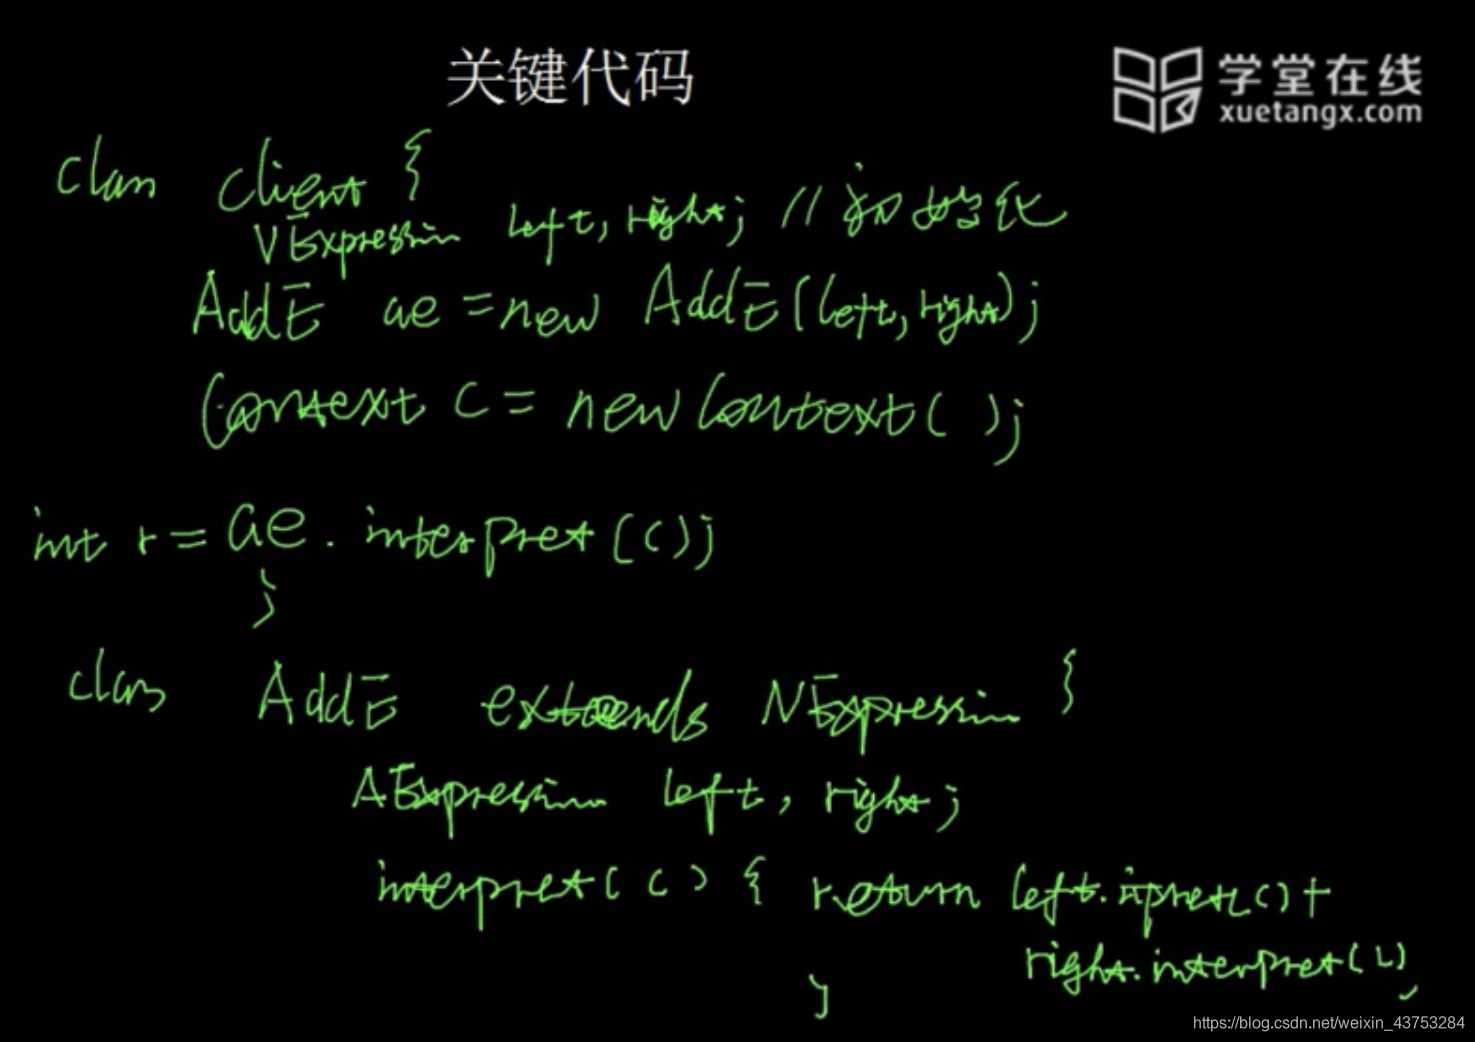 关键代码
学堂在线
xuetangx.com
class client {
VExpression left, right; // 初始化
AddE ae = new AddE(left, right);
Context c = new Context( );
int r = ae. interpret(c);
}
class AddE extends NExpression {
AExpression left, right;
interpret( c ) { return left.ipret(c) +
right.interpret(c)
}
https://blog.csdn.net/weixin_43753284